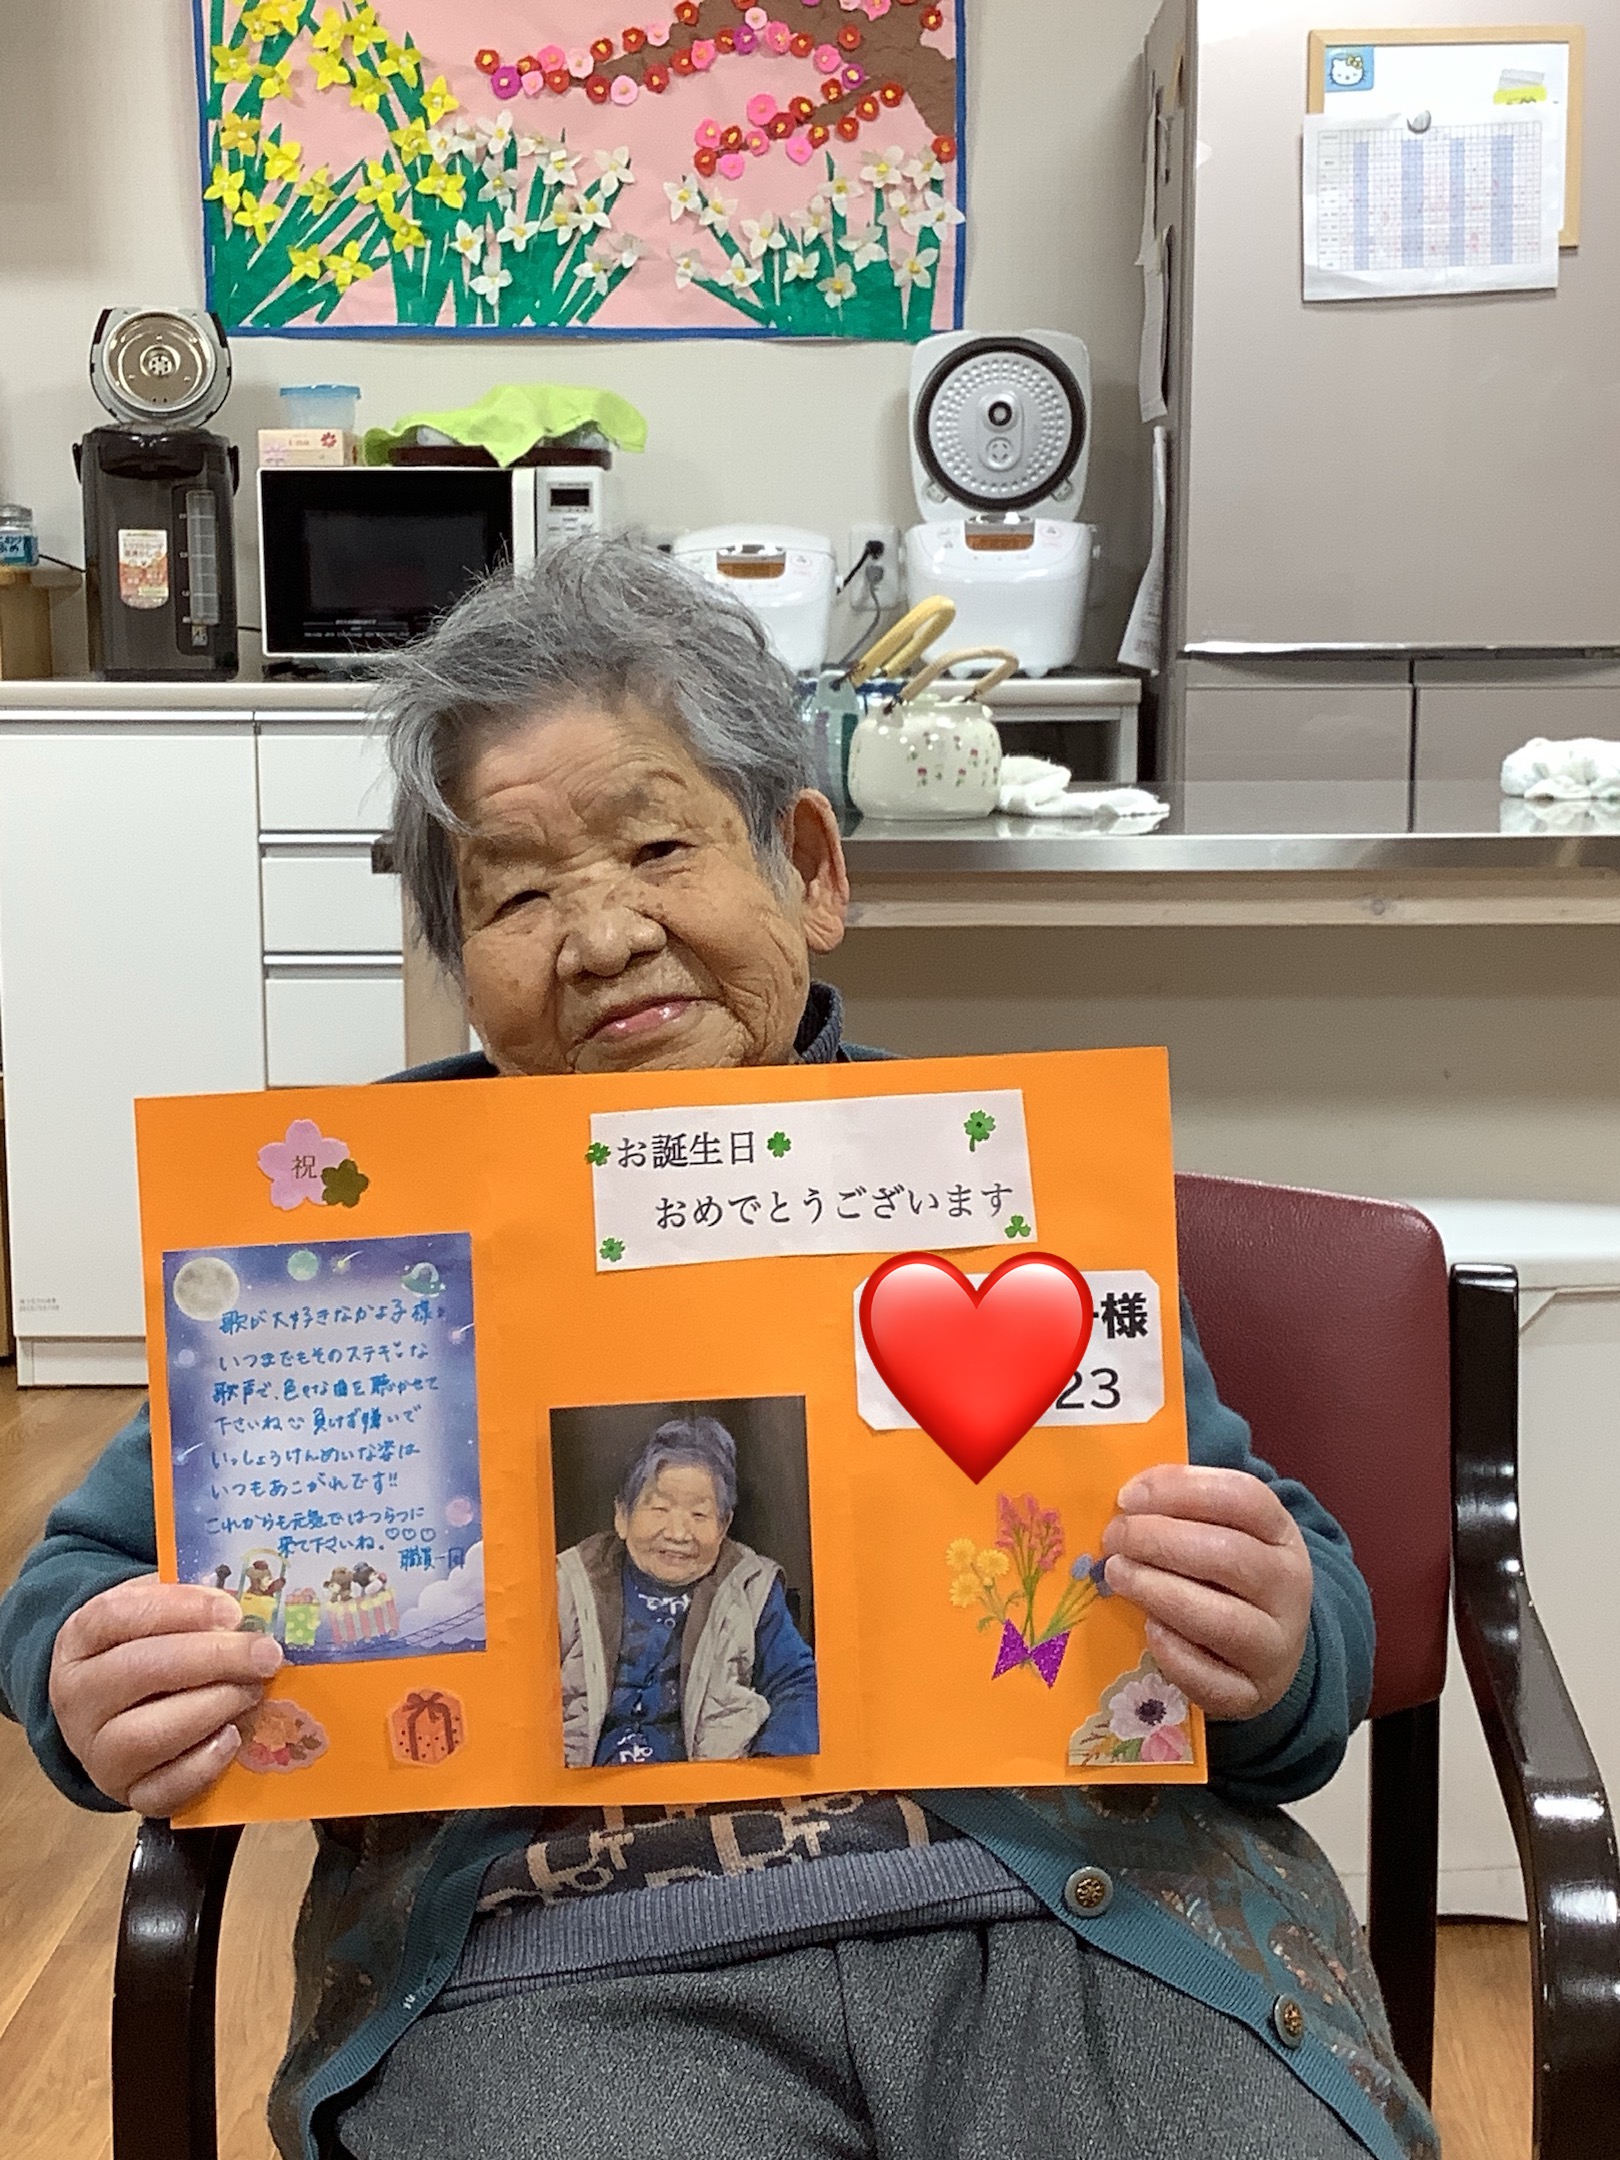 祝
お誕生日
おめでとうございます
様
23
歌が大好きなかよ子様
いつまでもそのステキな
歌声で、色々な曲を聴かせて
下さいね 負けず嫌いで
いっしょうけんめいな姿は
いつもあこがれです!!
これからも元気ではつらつに
来て下さいね。♡♡♡
職員一同